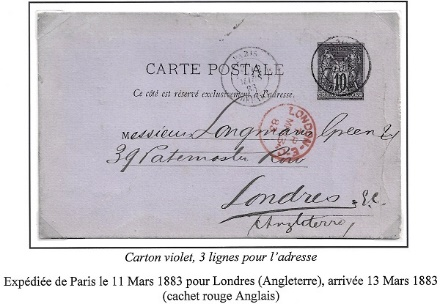 CARTE POSTALE
Ce côté est réservé exclusivement à l'adresse.
PARIS
10
LONDON-E.C
Messieurs Longmans Green &
39 Paternoster Row
Londres E.C.
(Angleterre)
Carton violet, 3 lignes pour l'adresse
Expédiée de Paris le 11 Mars 1883 pour Londres (Angleterre), arrivée 13 Mars 1883
(cachet rouge Anglais)